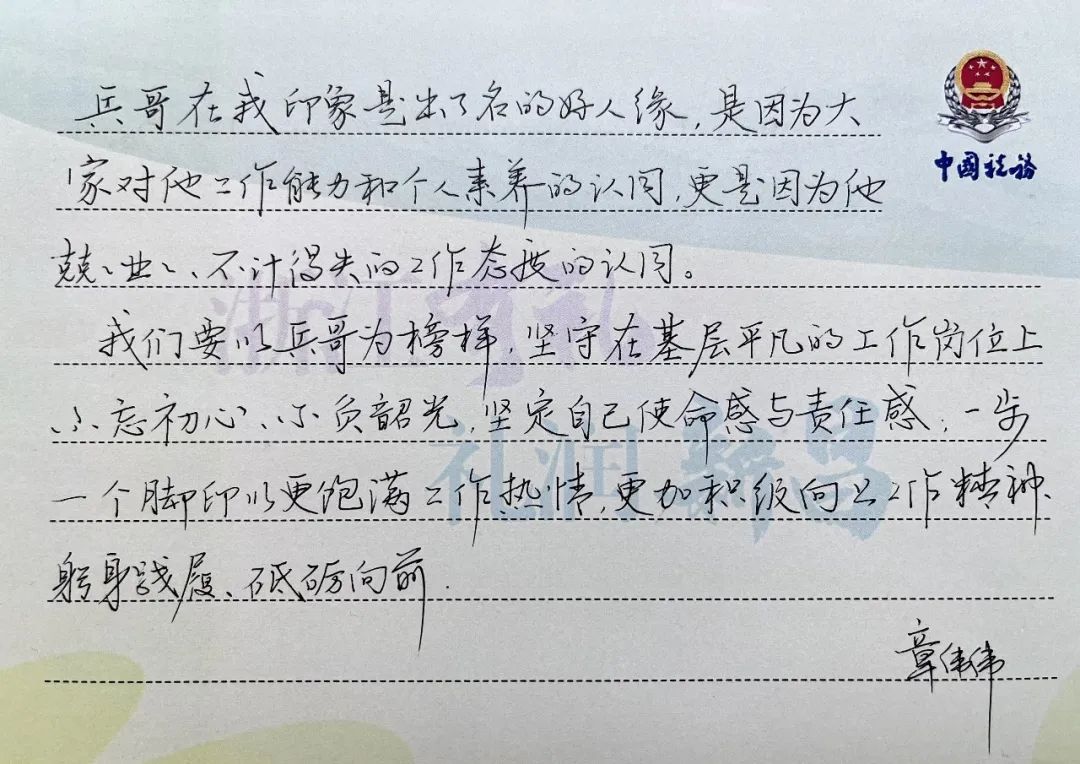 兵哥在我印象是出了名的好人缘,是因为大
家对他工作能力和个人素养的认同,更是因为他
兢兢业业、不计得失的工作态度的认同。
我们要以兵哥为榜样,坚守在基层平凡的工作岗位上
不忘初心、不负韶光,坚定自己使命感与责任感,一步
一个脚印以更饱满工作热情,更加积极向上工作精神、
躬身践履、砥砺向前.
章伟伟
中国税务
浙江有礼
礼润新昌